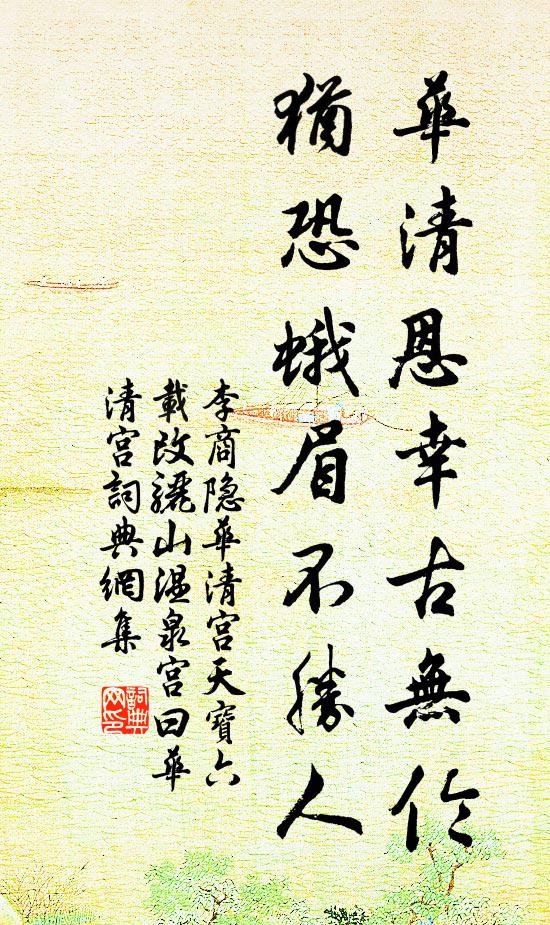 華清恩幸古無倫
猶恐蛾眉不勝人
李商隐華清宫天寶六
載改骊山温泉宫曰華
清宫詞典網集
詞典
网印